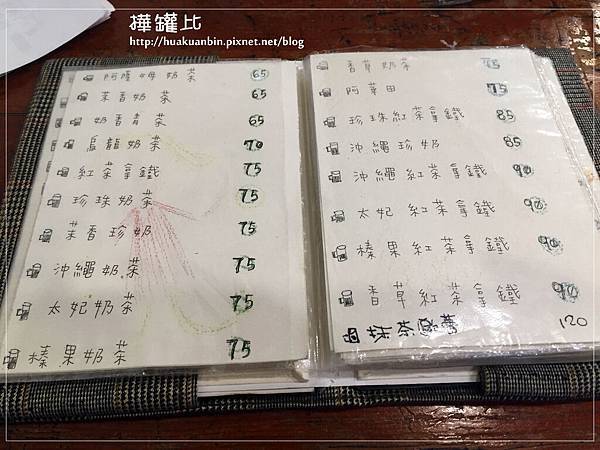 樺罐比
http://huakuanbin.pixnet.net/blog
阿薩姆奶茶 65
茉香奶茶 65
奶香青茶 65
烏龍奶茶 70
紅茶拿鐵 75
珍珠奶茶 75
茉香珍奶 75
沖繩奶茶 75
太妃奶茶 75
榛果奶茶 75
香草奶茶 75
阿華田 75
珍珠紅茶拿鐵 85
沖繩珍奶 85
沖繩紅茶拿鐵 90
太妃紅茶拿鐵 90
榛果紅茶拿鐵 90
香草紅茶拿鐵 90
抹茶 120